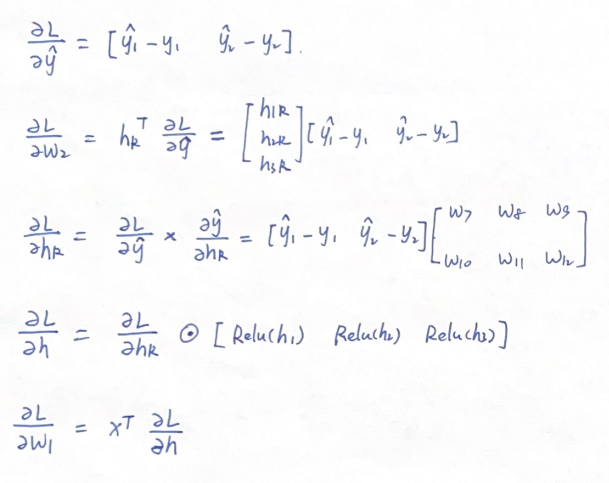 ∂L/∂ŷ = [ŷ₁ - y₁  ŷ₂ - y₂].
∂L/∂W₂ = h_R^T ∂L/∂ŷ = [h₁R h₂R h₃R] [ŷ₁ - y₁  ŷ₂ - y₂]
∂L/∂h_R = ∂L/∂ŷ × ∂ŷ/∂h_R = [ŷ₁ - y₁  ŷ₂ - y₂] [W₇ W₈ W₉ W₁₀ W₁₁ W₁₂]
∂L/∂h = ∂L/∂h_R ⊙ [Relu(h₁)  Relu(h₂)  Relu(h₃)]
∂L/∂W₁ = x^T ∂L/∂h